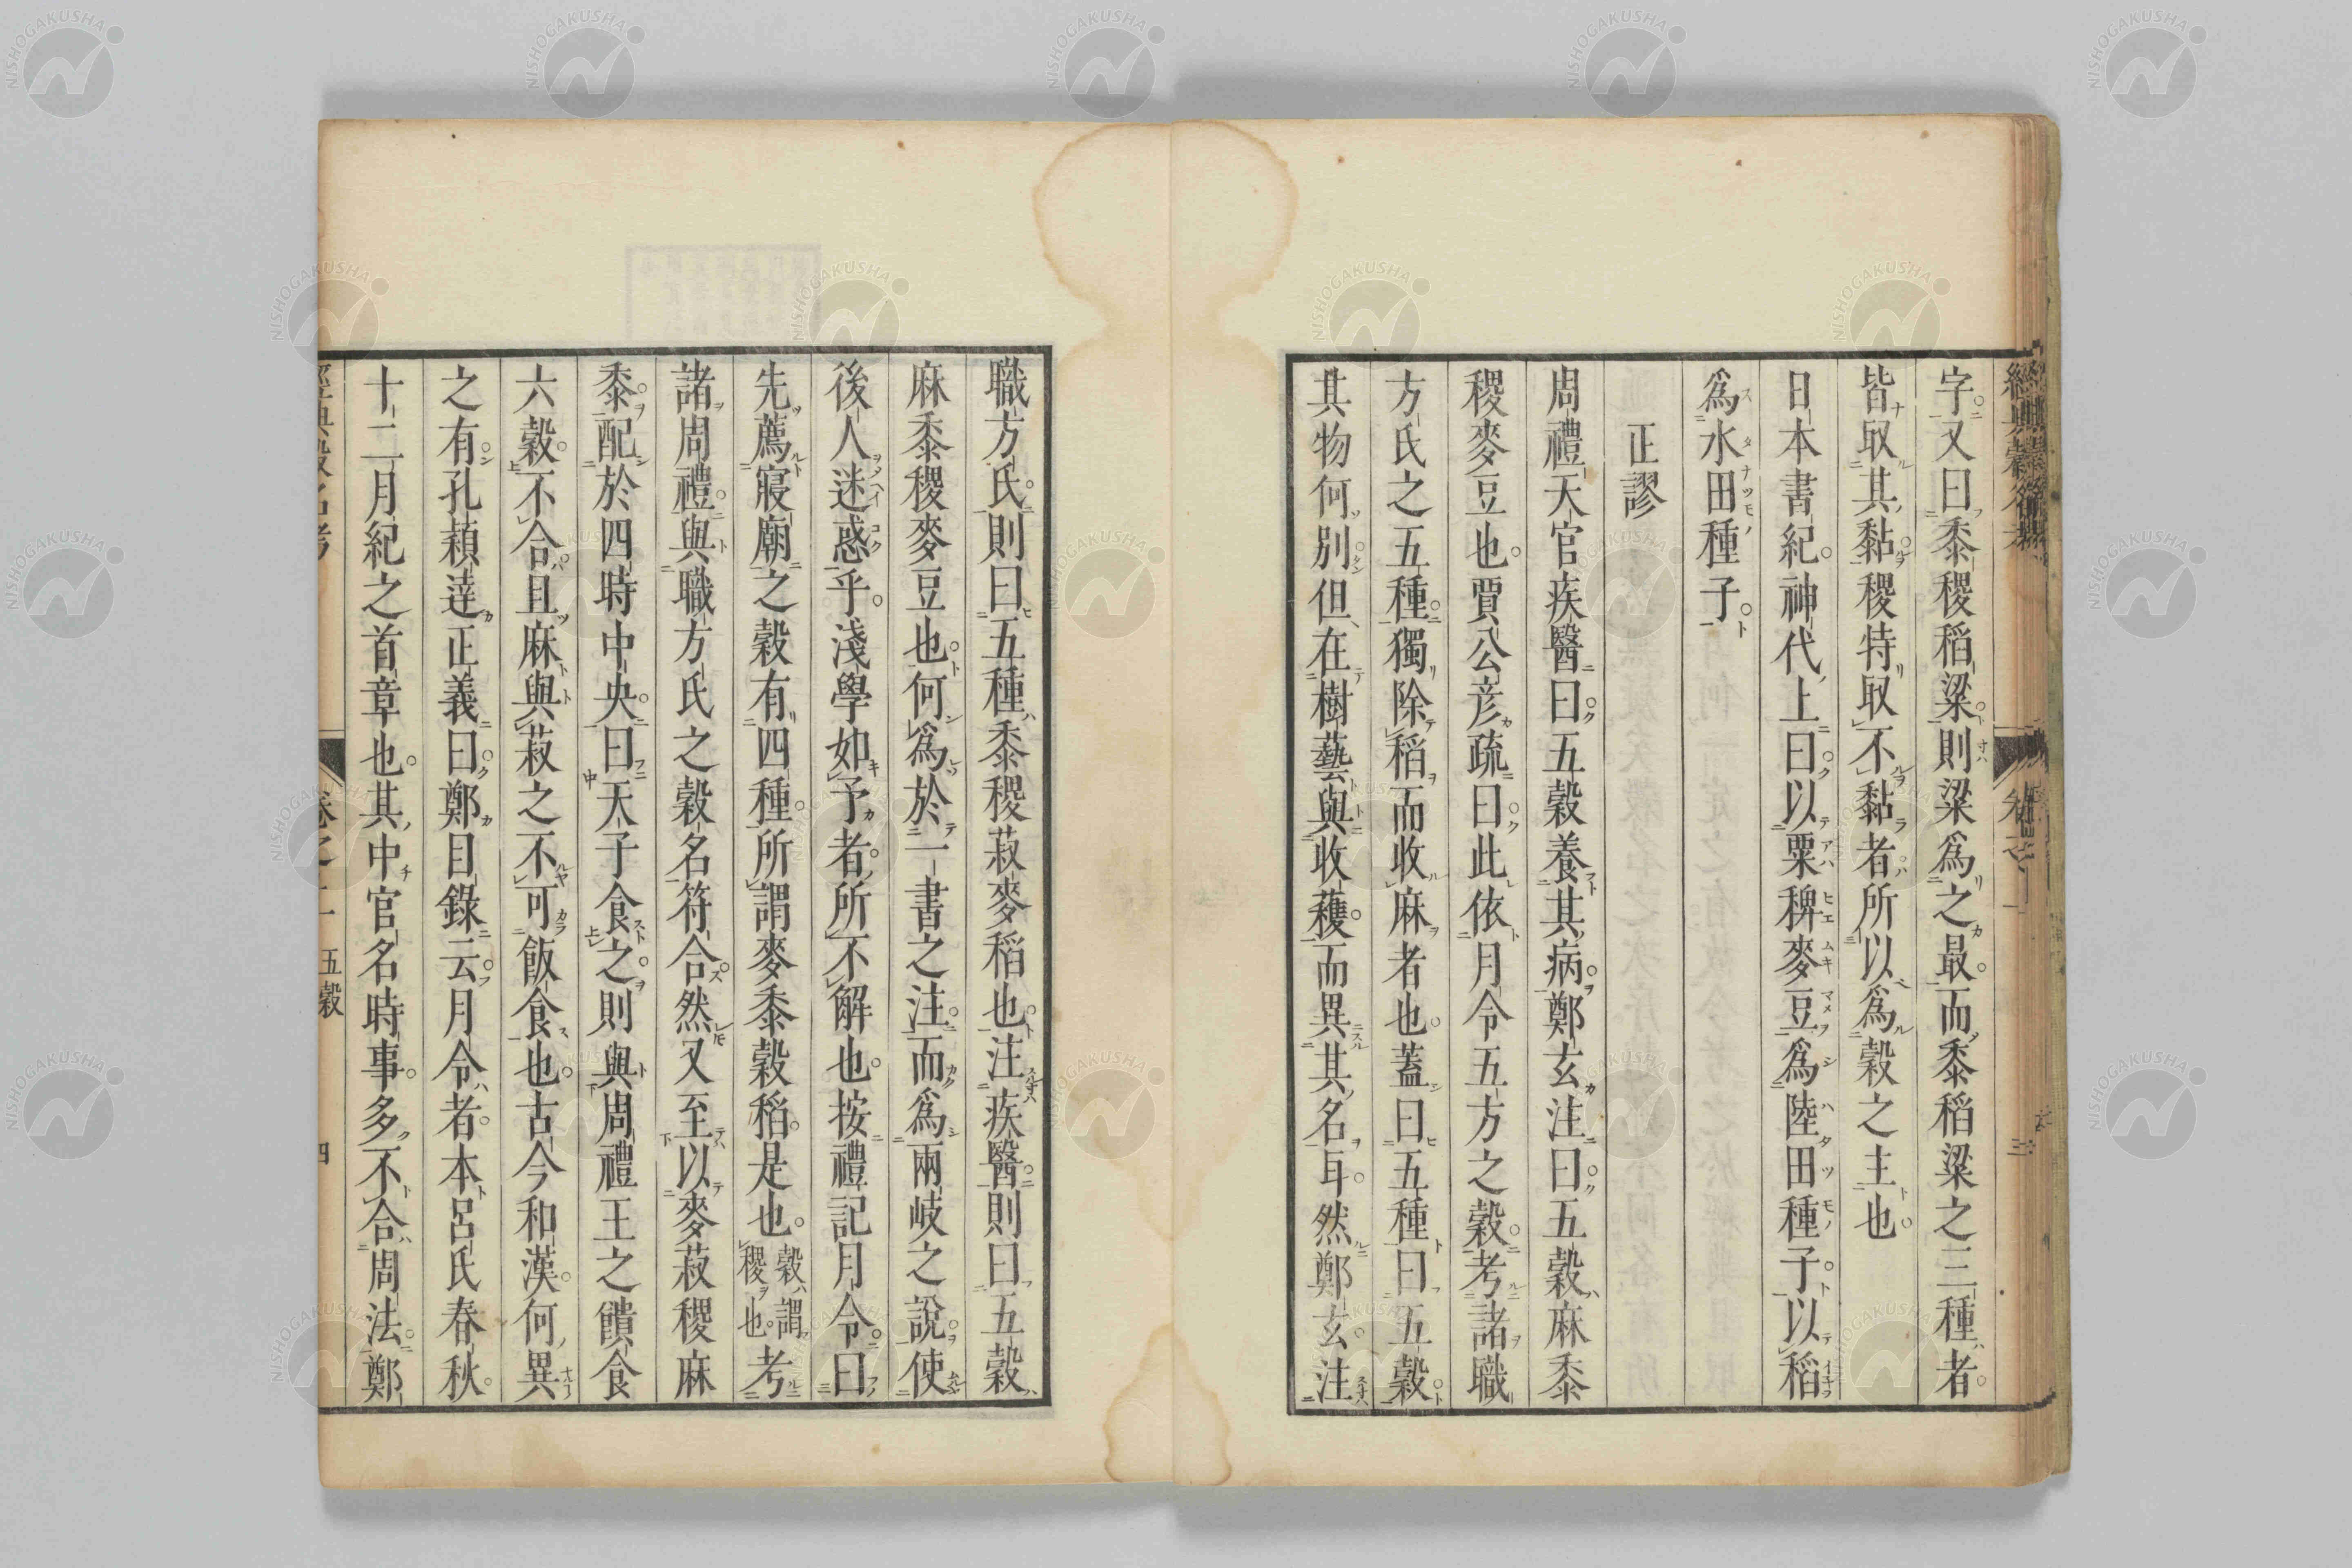 字又曰黍稷稻粱則粱爲之最而黍稻粱之三種者
皆取其黏稷特取不黏者所以爲穀之主也
日本書紀神代上曰以粟稗麥豆爲陸田種子以稻
爲水田種子
正謬
周禮天官疾醫曰五穀養其病鄭玄注曰五穀麻黍
稷麥豆也賈公彦疏曰此依月令五方之穀考諸職
方氏之五種獨除稻而收麻者也蓋曰五種曰五穀
其物何別但在樹藝與收穫而異其名耳然鄭玄注
職方氏則曰五種黍稷菽麥稻也注疾醫則曰五穀
麻黍稷麥豆也何爲於一書之注而爲兩岐之說使
後人迷惑乎淺學如予者所不解也按禮記月令曰
先薦寢廟之穀有四種所謂麥黍穀稻是也穀謂稷也考
諸周禮與職方氏之穀名符合然又至以麥菽稷麻
黍配於四時中央曰天子食之則與周禮王之饋食
六穀不合且麻與菽之不可飯食也古今和漢何異
之有孔穎達正義曰鄭目錄云月令者本呂氏春秋
十二月紀之首章也其中官名時事多不合周法鄭
經典穀名考 卷之一 五穀 四